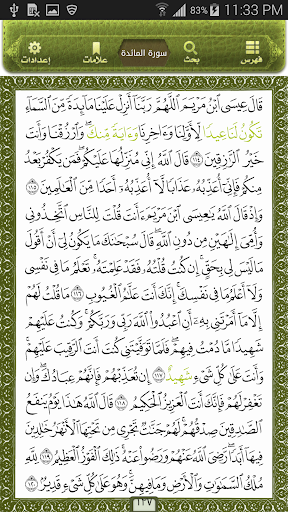 83% 11:33 PM
إعدادات علامات سورة المائدة بحث فهرس
قَالَ عِيسَى ٱبْنُ مَرْيَمَ ٱللَّهُمَّ رَبَّنَآ أَنزِلْ عَلَيْنَا مَآئِدَةً مِّنَ ٱلسَّمَآءِ
تَكُونُ لَنَا عِيدًا لِّأَوَّلِنَا وَءَاخِرِنَا وَءَايَةً مِّنكَ وَٱرْزُقْنَا وَأَنتَ
خَيْرُ ٱلرَّٰزِقِينَ ١١٤ قَالَ ٱللَّهُ إِنِّى مُنَزِّلُهَا عَلَيْكُمْ فَمَن يَكْفُرْ بَعْدُ
مِنكُمْ فَإِنِّىٓ أُعَذِّبُهُۥ عَذَابًا لَّآ أُعَذِّبُهُۥٓ أَحَدًا مِّنَ ٱلْعَٰلَمِينَ ١١٥
وَإِذْ قَالَ ٱللَّهُ يَٰعِيسَى ٱبْنَ مَرْيَمَ ءَأَنتَ قُلْتَ لِلنَّاسِ ٱتَّخِذُونِى
وَأُمِّىَ إِلَٰهَيْنِ مِن دُونِ ٱللَّهِ قَالَ سُبْحَٰنَكَ مَا يَكُونُ لِىٓ أَنْ أَقُولَ
مَا لَيْسَ لِى بِحَقٍّ إِن كُنتُ قُلْتُهُۥ فَقَدْ عَلِمْتَهُۥ تَعْلَمُ مَا فِى نَفْسِى
وَلَآ أَعْلَمُ مَا فِى نَفْسِكَ إِنَّكَ أَنتَ عَلَّٰمُ ٱلْغُيُوبِ ١١٦ مَا قُلْتُ لَهُمْ
إِلَّا مَآ أَمَرْتَنِى بِهِۦٓ أَنِ ٱعْبُدُوا۟ ٱللَّهَ رَبِّى وَرَبَّكُمْ وَكُنتُ عَلَيْهِمْ
شَهِيدًا مَّا دُمْتُ فِيهِمْ فَلَمَّا تَوَفَّيْتَنِى كُنتَ أَنتَ ٱلرَّقِيبَ عَلَيْهِمْ
وَأَنتَ عَلَىٰ كُلِّ شَىْءٍ شَهِيدٌ ١١٧ إِن تُعَذِّبْهُمْ فَإِنَّهُمْ عِبَادُكَ وَإِن
تَغْفِرْ لَهُمْ فَإِنَّكَ أَنتَ ٱلْعَزِيزُ ٱلْحَكِيمُ ١١٨ قَالَ ٱللَّهُ هَٰذَا يَوْمُ يَنفَعُ
ٱلصَّٰدِقِينَ صِدْقُهُمْ لَهُمْ جَنَّٰتٌ تَجْرِى مِن تَحْتِهَا ٱلْأَنْهَٰرُ خَٰلِدِينَ
فِيهَآ أَبَدًا رَّضِىَ ٱللَّهُ عَنْهُمْ وَرَضُوا۟ عَنْهُ ذَٰلِكَ ٱلْفَوْزُ ٱلْعَظِيمُ ١١٩ لِلَّهِ
مُلْكُ ٱلسَّمَٰوَٰتِ وَٱلْأَرْضِ وَمَا فِيهِنَّ وَهُوَ عَلَىٰ كُلِّ شَىْءٍ قَدِيرٌۢ ١٢٠
١٢٧